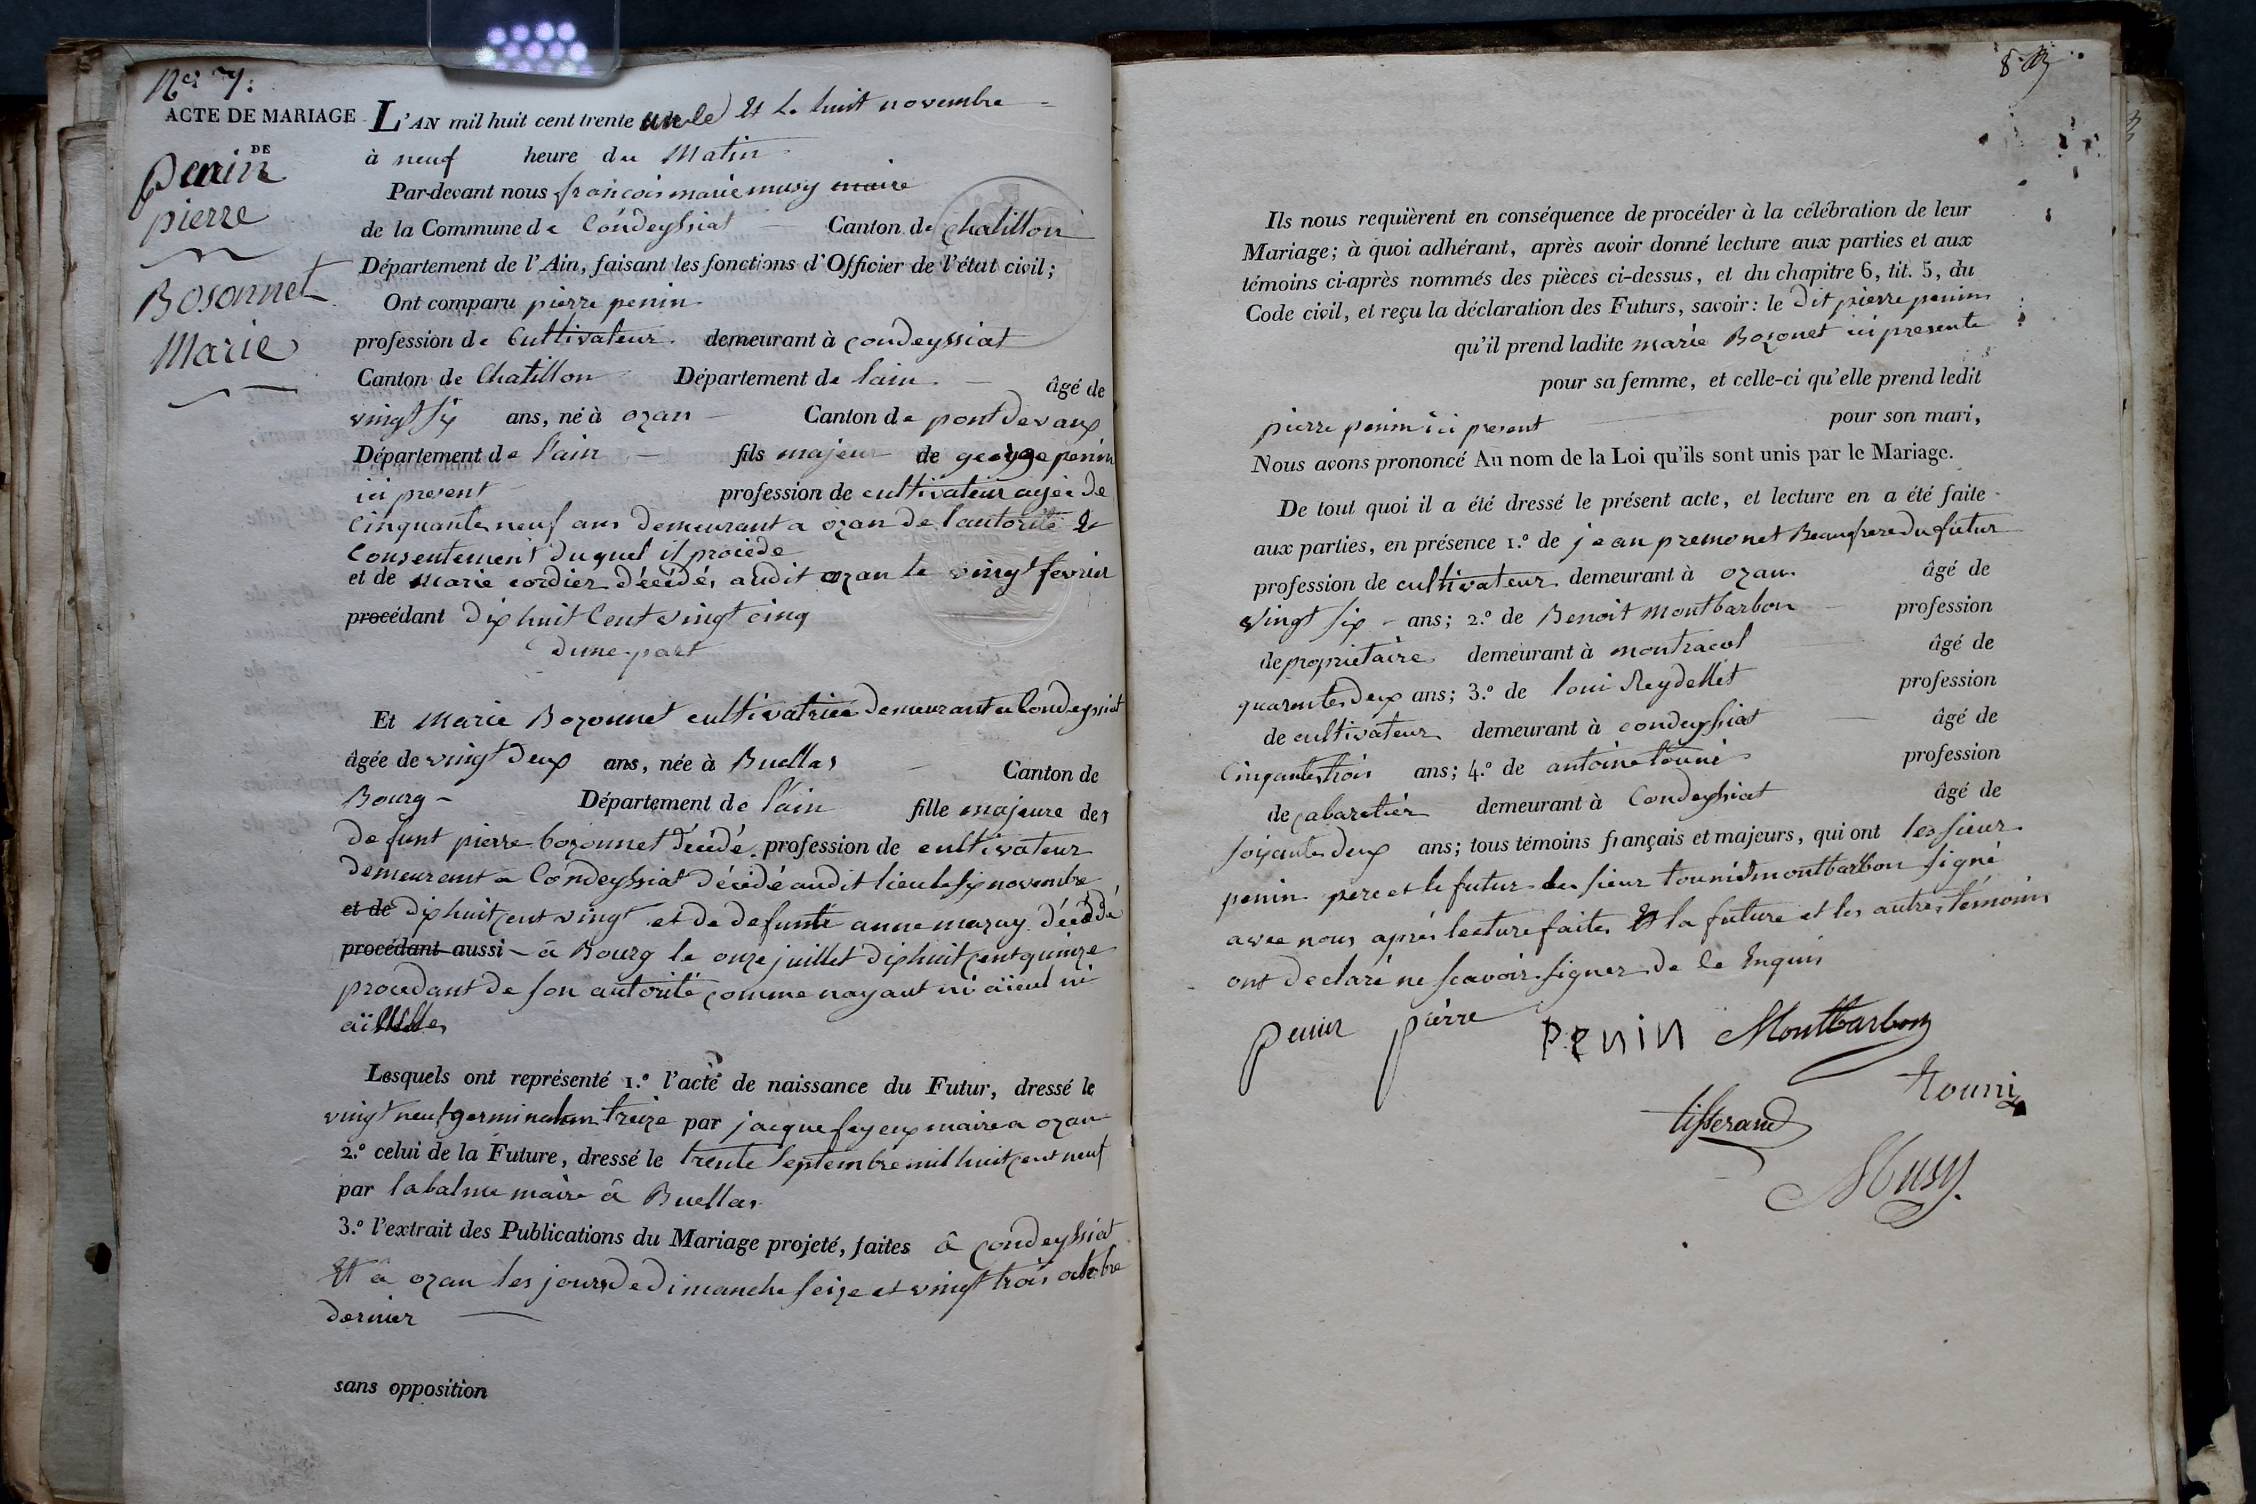 Nos 7:
ACTE DE MARIAGE
DE
Penin
pierre
Bosonnet
Marie
L'AN mil huit cent trente un le Et Le huit novembre
à neuf heure du Matin
Par-devant nous francois marie musy maire
de la Commune de Condeyssiat Canton de chatillon
Département de l'Ain, faisant les fonctions d'Officier de l'état civil;
Ont comparu pierre penin
profession de Cultivateur demeurant à condeyssiat
Canton de Chatillon Département de lain âgé de
vingt six ans, né à ozan Canton de pontdevaux
Département de l'ain fils majeur de george penin
ici present profession de cultivateur agée de
Cinquante neuf ans demeurant a ozan de l'autorité et
Consentement duquel il procède
et de marie cordier décédé, audit ozan le vingt fevrier
procédant dix huit Cent vingt cinq
dune part
Et Marie Bozonnet cultivatrice demeurant a Condeyssiat
âgée de vingt deux ans, née à Buellas Canton de
Bourg Département de l'ain fille majeure des
defunt pierre bozonnet décédé profession de cultivateur
demeurant a Condeyssiat décédé audit lieu le six novembre
et de dix huit cent vingt et de defunte anne mazuy décédé
procédant aussi – à Bourg le onze juillet dix huit cent quinze
procedant de son autorité comme nayant ni aïeul ni
Lesquels ont représenté 1.º l'acte de naissance du Futur, dressé le
vingt neuf germinal an treize par jacque feyeux maire a ozan
2.º celui de la Future, dressé le trente septembre mil huit cent neuf
par labalme maire â Buellas
3.º l'extrait des Publications du Mariage projeté, faites â condeyssiat
Et â ozan les jours de dimanche seize et vingt trois octobre
dernier
sans opposition
Ils nous requièrent en conséquence de procéder à la célébration de leur
Mariage; à quoi adhérant, après avoir donné lecture aux parties et aux
témoins ci-après nommés des pièces ci-dessus, et du chapitre 6, tit. 5, du
Code civil, et reçu la déclaration des Futurs, savoir: le dit pierre penin
qu'il prend ladite marie Bozonet ici presente
pour sa femme, et celle-ci qu'elle prend ledit
pierre penin ici present pour son mari,
Nous avons prononcé Au nom de la Loi qu'ils sont unis par le Mariage.
De tout quoi il a été dressé le présent acte, et lecture en a été faite
aux parties, en présence 1.º de jean premonet Beaufrere du futur
profession de cultivateur demeurant à ozan âgé de
vingt six ans; 2.º de Benoit Montbarbon profession
de propriétaire demeurant à montracol âgé de
quarante deux ans; 3.º de loui Reydellet profession
de cultivateur demeurant à condeyssiat âgé de
Cinquante trois ans; 4.º de antoine touni profession
de cabaretier demeurant à Condeyssiat âgé de
soixante deux ans; tous témoins français et majeurs, qui ont les sieur
penin pere et le futur les sieur touni montbarbon signé
avec nous après lecture faite Et la future et les autres temoins
ont declaré ne scavoir signer de ce Enquis
penin pierre PENIN Montbarbon
touni
tisserand
Musy